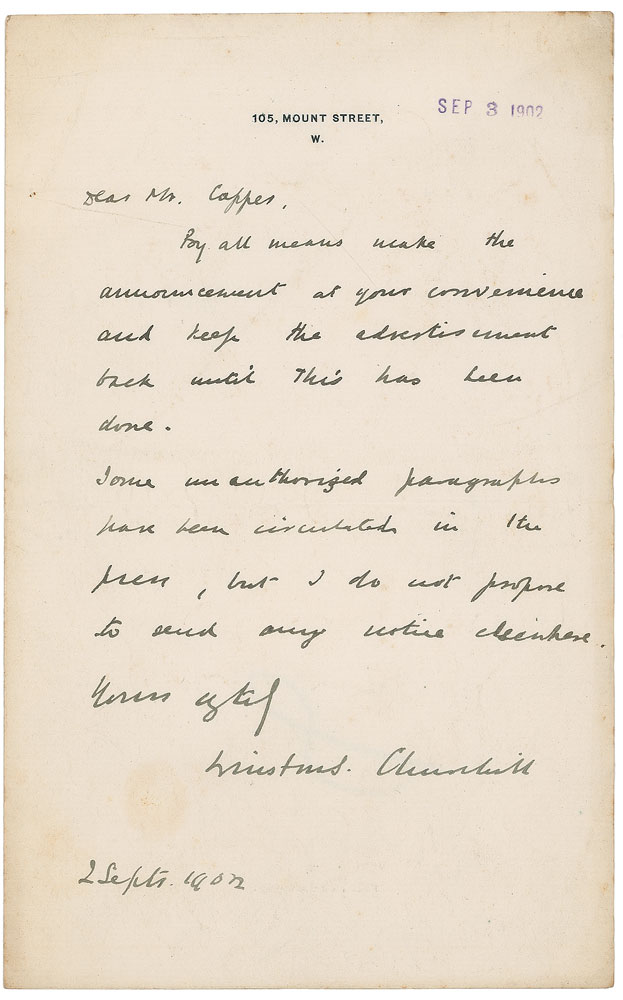 105, MOUNT STREET,
W.
SEP 3 1902
Dear Mr. Capper,
By all means make the
announcement at your convenience
and keep the advertisement
back until this has been
done.
Some unauthorized paragraphs
have been circulated in the
press, but I do not propose
to send any notice elsewhere.
Yours
Winston S. Churchill
2 Sept. 1902